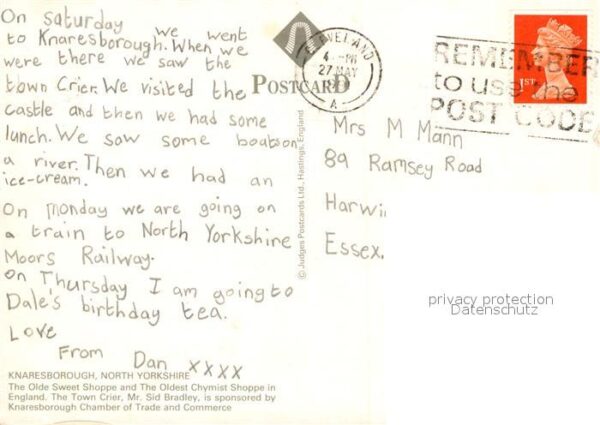 On Saturday we went
to Knaresborough. When we
were there we saw the
town Crier. We visited the
castle and then we had some
lunch. We saw some boats on
a river. Then we had an
ice-cream.
On Monday we are going on
a train to North Yorkshire
Moors Railway.
On Thursday I am going to
Dale's birthday tea.
Love
From Dan xxxx
KNARESBOROUGH, NORTH YORKSHIRE
The Olde Sweet Shoppe and The Oldest Chymist Shoppe in
England. The Town Crier, Mr. Sid Bradley, is sponsored by
Knaresborough Chamber of Trade and Commerce
POSTCARD
© Judges Postcards Ltd., Hastings, England
CLEVELAND
4 - PM
27 MAY
A
REMEMBER
to use the
POST CODE
1ST
Mrs M Mann
89 Ramsey Road
Harwi
Essex.
privacy protection
Datenschutz